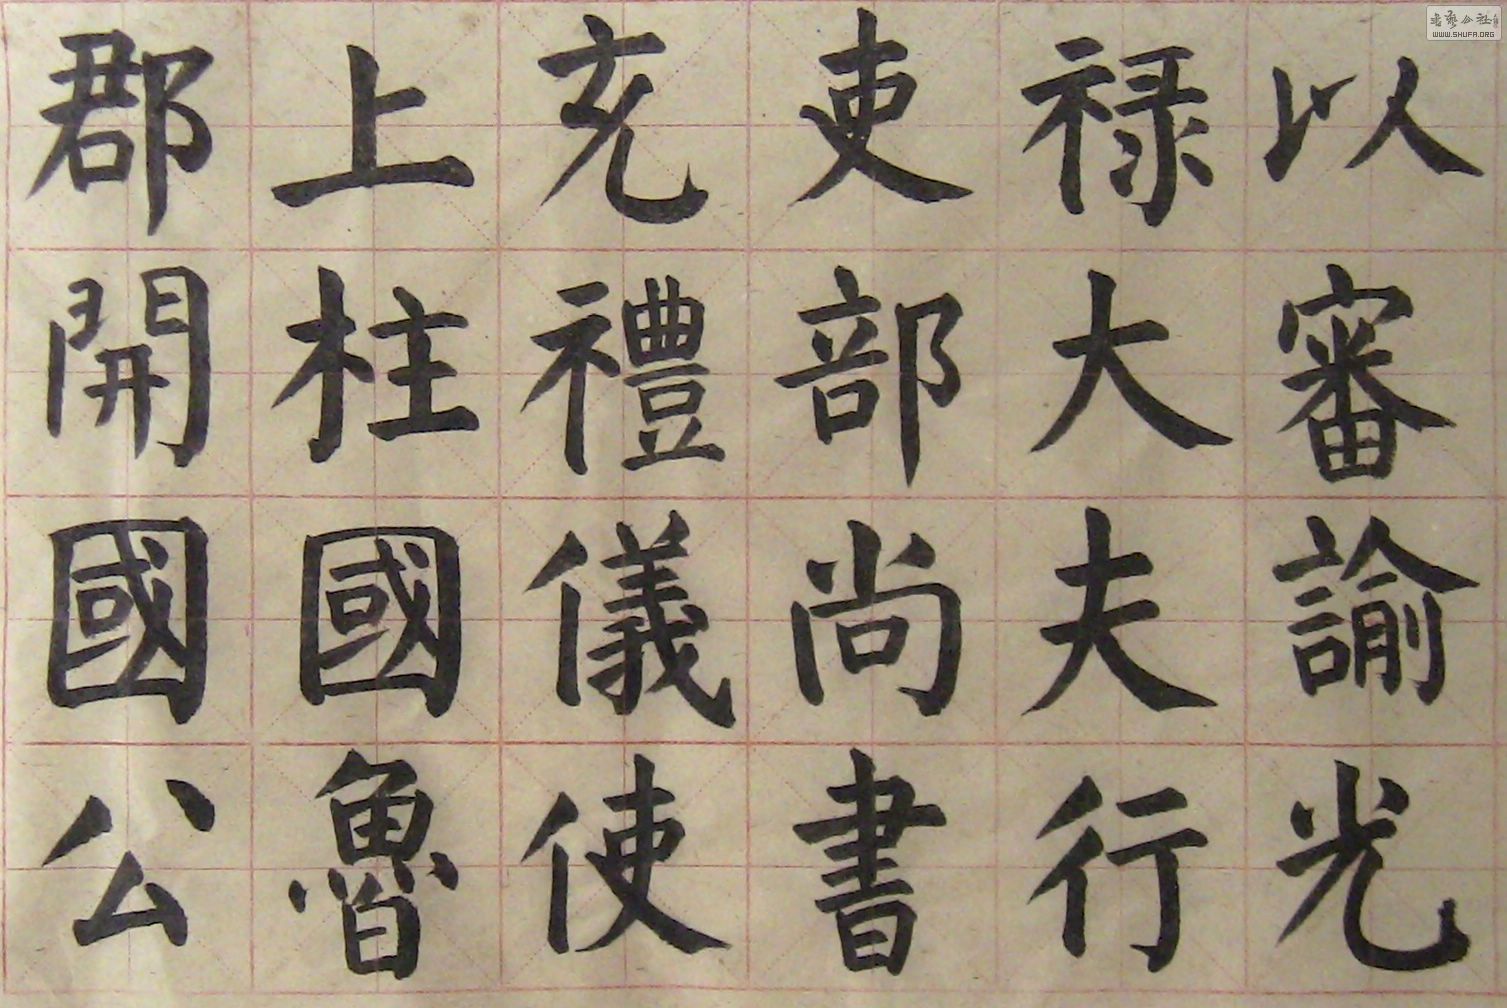 以審諭光
禄大夫行
吏部尚書
充禮儀使
上柱國魯
郡開國公
WWW.SHUFA.ORG